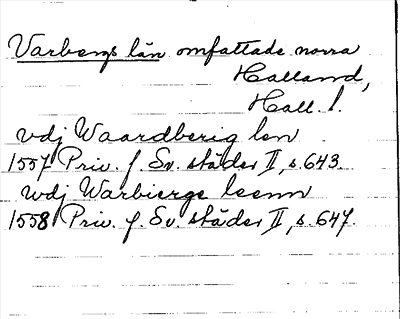 Varbergs län omfattade norra
Halland,
Hall. l.
vdj Waardberig len
1557 Priv. f. Sv. städer II, s. 643.
wdj Warbierge leenn
1558 Priv. f. Sv. städer II, s. 647.